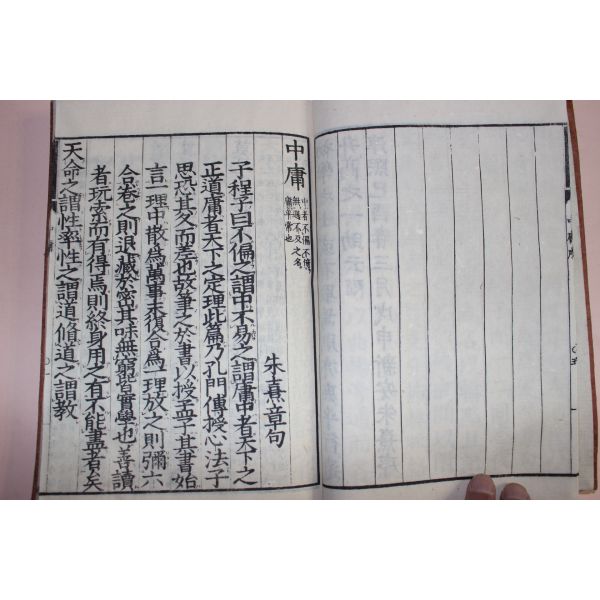 中庸
中者不偏不倚
無過不及之名
庸平常也
朱熹章句
子程子曰不偏之謂中不易之謂庸中者天下之
正道庸者天下之定理此篇乃孔門傳授心法子
思恐其久而差也故筆之於書以授孟子其書始
言一理中散爲萬事末復合爲一理放之則彌六
合卷之則退藏於密其味無窮皆實學也善讀
者玩索而有得焉則終身用之有不能盡者矣
天命之謂性率性之謂道脩道之謂教